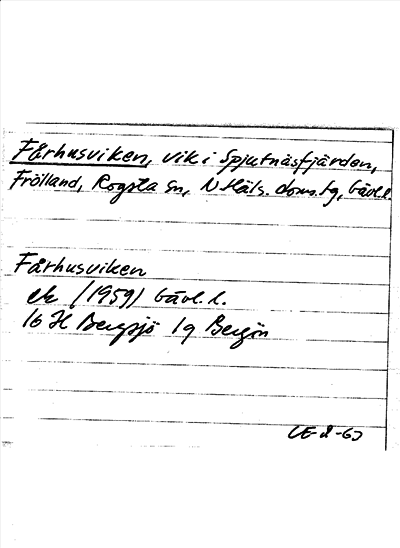 Fårhusviken, vik i Spjutnäsfjärden,
Frölland, Rogsta sn, N Häls. doms.tg, Gävl.l.
Fårhusviken
ek (1959) Gävl. l.
16 H Bergsjö 1g Bergön